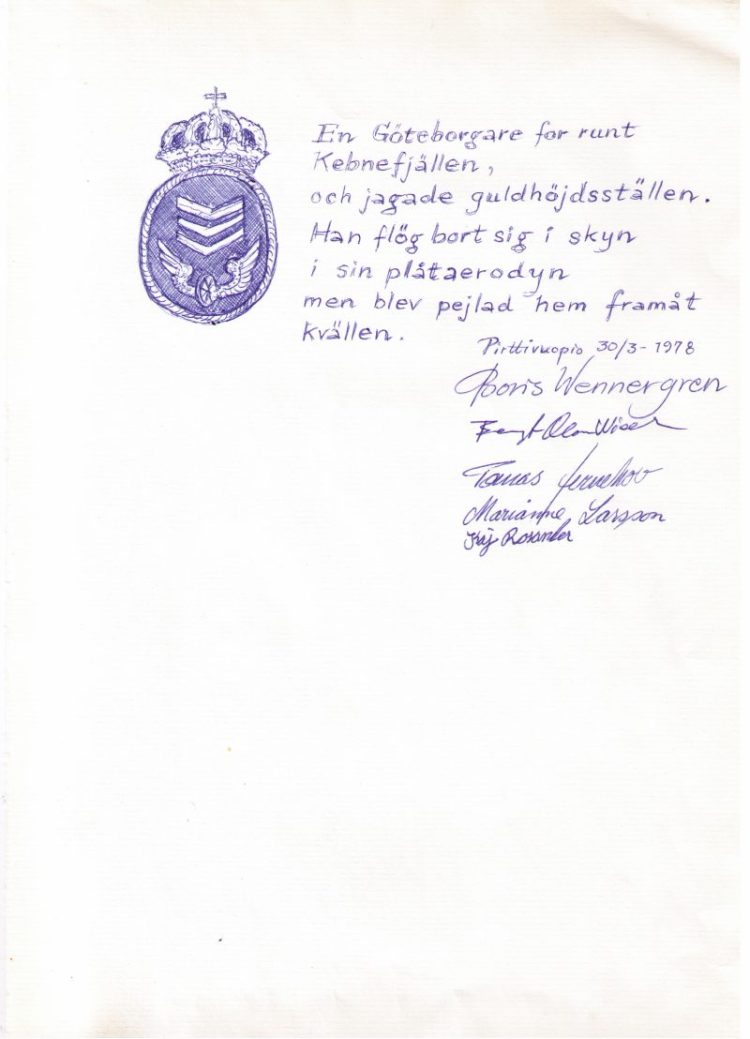 En Göteborgare for runt
Kebnefjällen,
och jagade guldhöjdsställen.
Han flög bort sig i skyn
i sin plåtaerodyn
men blev pejlad hem framåt
kvällen.
Pirttivuopio 30/3-1978
Boris Wennergren
Marianne Larsson